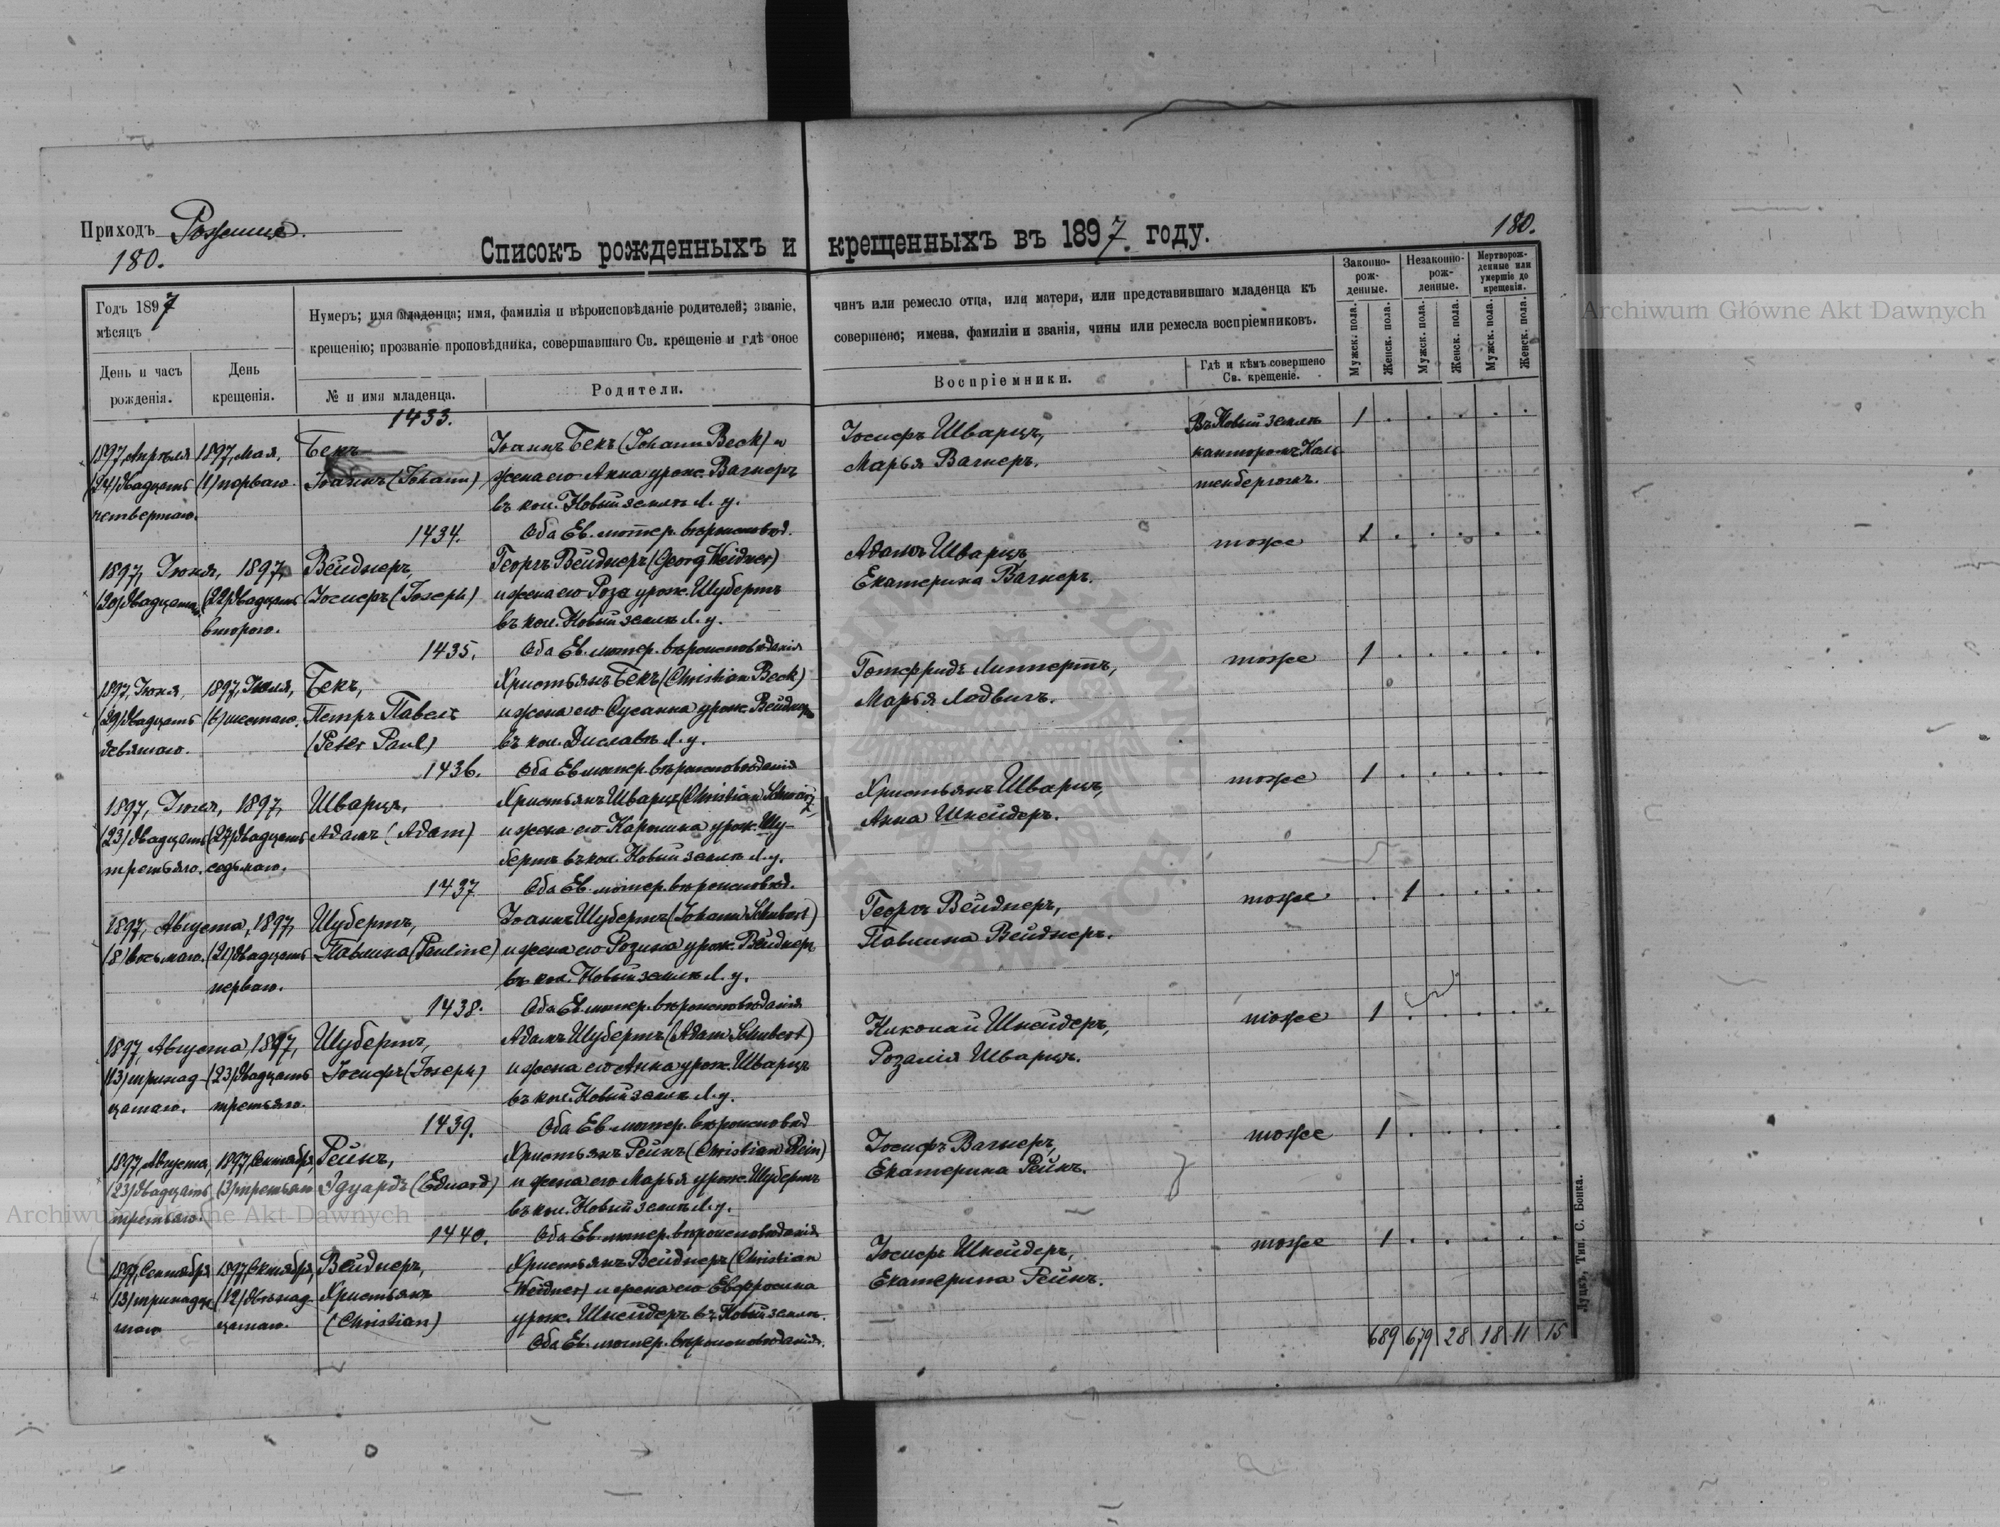 Приходъ Рожище.
180.
180.
Списокъ рожденныхъ и крещенныхъ въ 1897 году.
Годъ 1897
мѣсяцъ
День и часъ
рожденія.
День
крещенія.
Нумеръ; имя младенца; имя, фамилія и вѣроисповѣданіе родителей; званіе,
крещенію; прозваніе проповѣдника, совершавшаго Св. крещеніе и гдѣ оное
№ и имя младенца.
Родители.
чинъ или ремесло отца, или матери, или представившаго младенца къ
совершено; имена, фамиліи и званія, чины или ремесла воспріемниковъ.
Воспріемники.
Гдѣ и кѣмъ совершено
Св. крещеніе.
Законно-
рож-
денные.
Незаконно-
рож-
денные.
Мертворож-
денные или
умершіе до
крещенія.
Мужск. пола.
Женск. пола.
Мужск. пола.
Женск. пола.
Мужск. пола.
Женск. пола.
1433.
1897, Апрѣля 1897, Мая, Бекъ Іоаннъ Бекъ (Johann Beck) и Іосифъ Шварцъ, Въ Новый землѣ 1
(24) двадцать (1) перваго Іоаннъ (Johann), жена его Анна урож. Вагнеръ Марья Вагнеръ. канторомъ Каль-
четвертаго. въ кол. Новый землѣ Л. у. тенбергомъ.
1434. Оба Ев. лютер. вѣроисповѣд.
1897, Іюня, 1897, Вейднеръ, Георгъ Вейднеръ (Georg Weidner) Адамъ Шварцъ тоже 1
(20) двадцатаго (22) двадцать Іосифъ (Joseph) и жена его Роза урож. Шубертъ Екатерина Вагнеръ.
втораго. въ кол. Новый землѣ Л. у.
1435. Оба Ев. лютер. вѣроисповѣданія
1897, Іюня, 1897, Іюля, Бекъ, Христьянъ Бекъ (Christian Beck) Готфридъ Липпертъ, тоже 1
(29) двадцать (6) шестаго. Петръ Павелъ и жена его Сусанна урож. Вейднеръ Марья Лодвигъ.
девятаго. (Peter Paul) въ кол. Диславъ Л. у.
1436. Оба Ев. лютер. вѣроисповѣданія
1897, Іюля, 1897, Шварцъ, Христьянъ Шварцъ (Christian Schwarz) Христьянъ Шварцъ, тоже 1
(23) двадцать (27) двадцать Адамъ (Adam) и жена его Каролина урож. Шу- Анна Шнейдеръ.
третьяго. седьмаго. бертъ въ кол. Новый землѣ Л. у.
1437. Оба Ев. лютер. вѣроисповѣд.
1897, Августа, 1897, Шубертъ, Іоаннъ Шубертъ (Johann Schubert) Георгъ Вейднеръ, тоже 1
(8) восьмаго. (21) двадцать Павлина (Pauline) и жена его Розина урож. Вейднеръ Павлина Вейднеръ.
перваго. въ кол. Новый землѣ Л. у.
1438. Оба Ев. лютер. вѣроисповѣданія
1897, Августа, 1897, Шубертъ, Адамъ Шубертъ (Adam Schubert) Николай Шнейдеръ, тоже 1
(13) тринад- (23) двадцать Іосифъ (Joseph) и жена его Анна урож. Шварцъ Розалія Шварцъ.
цатаго. третьяго. въ кол. Новый землѣ Л. у.
1439. Оба Ев. лютер. вѣроисповѣд
1897, Августа, 1897, Сентября Рейнъ, Христьянъ Рейнъ (Christian Rein) Іосифъ Вагнеръ, тоже 1
(23) двадцать (3) третьяго Эдуардъ (Eduard) и жена его Марья урож. Шубертъ Екатерина Рейнъ.
третьяго. въ кол. Новый землѣ Л. у.
1440. Оба Ев. лютер. вѣроисповѣданія
1897, Сентября 1897, Октября, Вейднеръ, Христьянъ Вейднеръ (Christian Іосифъ Шнейдеръ, тоже 1
(13) тринадца- (12) двѣнад- Христьянъ Weidner) и жена его Евфросина Екатерина Рейнъ.
таго цатаго. (Christian) урож. Шнейдеръ въ Новый землѣ.
Оба Ев. лютер. вѣроисповѣданія.
689 679 28 18 11 15
Луцкъ, Тип. С. Бонка.
Archiwum Główne Akt Dawnych
Archiwum Główne Akt Dawnych